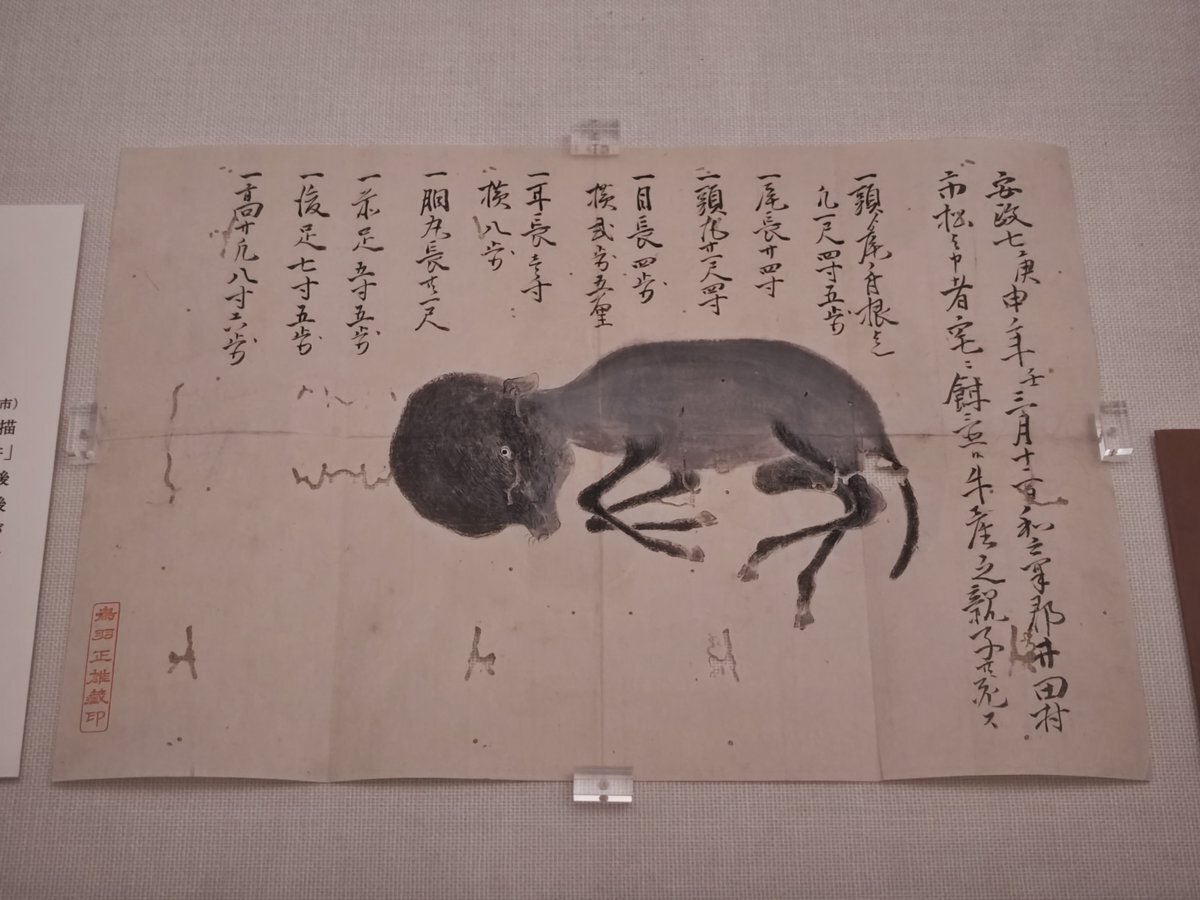 安政七庚申年壬三月十一日和気郡井田村
市松と申者宅ニ飼置候牛産之親子共死ス
一頭ゟ尾ノ付根迄
凡一尺四寸五歩
一尾長サ四寸
一頭丸サ一尺四寸
一目長四歩
横弐歩五厘
一耳長壱寸
横八歩
一胴丸長サ一尺
一前足五寸五歩
一後足七寸五歩
一高サ凡八寸六歩
鳥羽正雄蔵印
市）
描
」
後
後